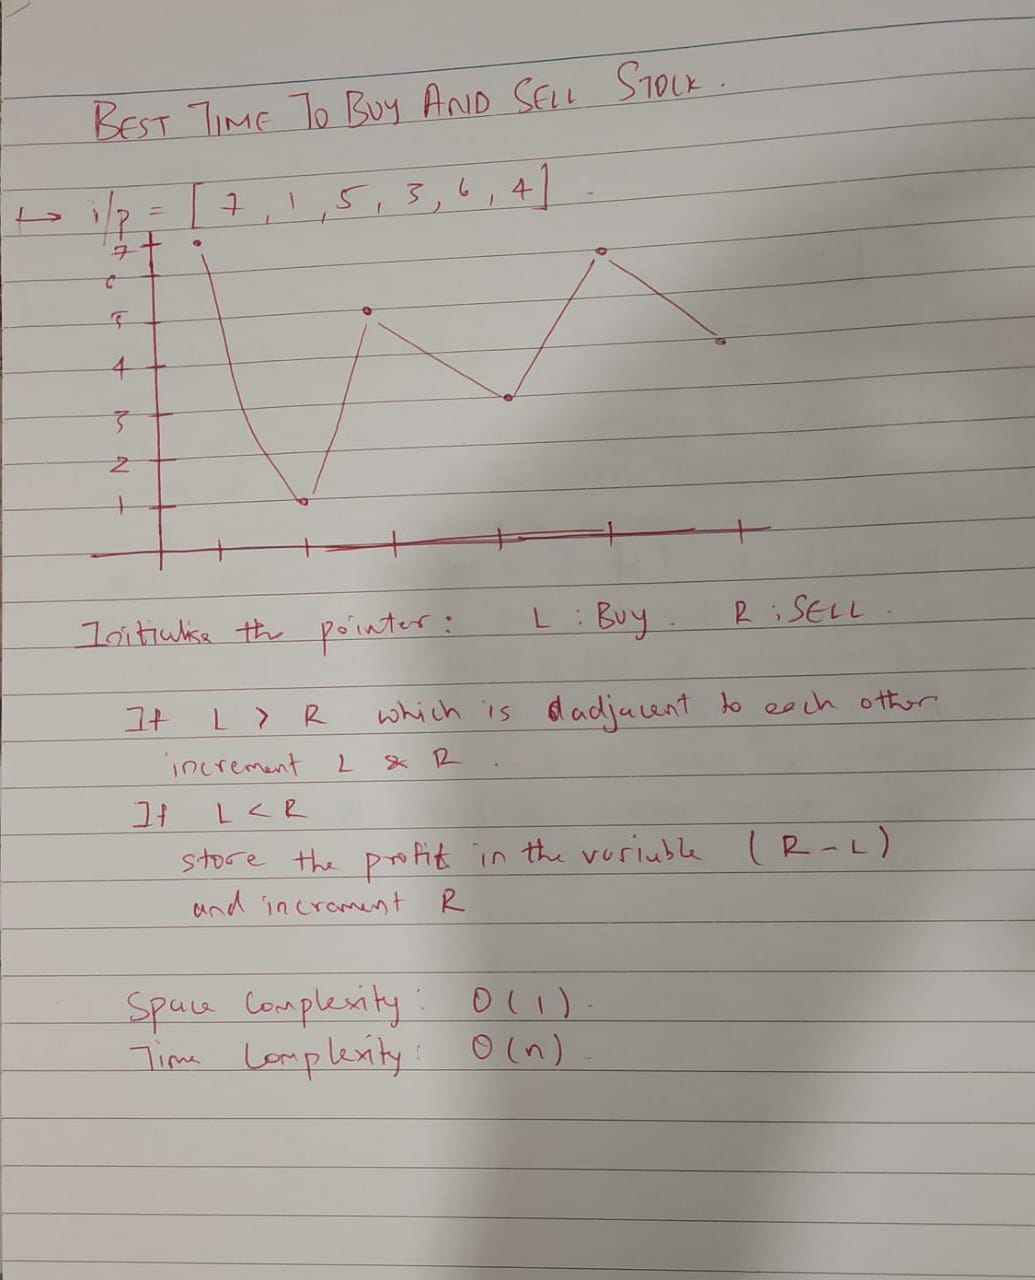 BEST TIME TO BUY AND SELL STOCK.
↳ i/p = [7, 1, 5, 3, 6, 4].
7
6
5
4
3
2
1
Initialise the pointer: L : Buy. R : SELL.
If L > R which is dadjacent to each other
increment L & R.
If L < R
store the profit in the variable (R - L)
and increment R
Space Complexity: O(1).
Time Complexity: O(n).